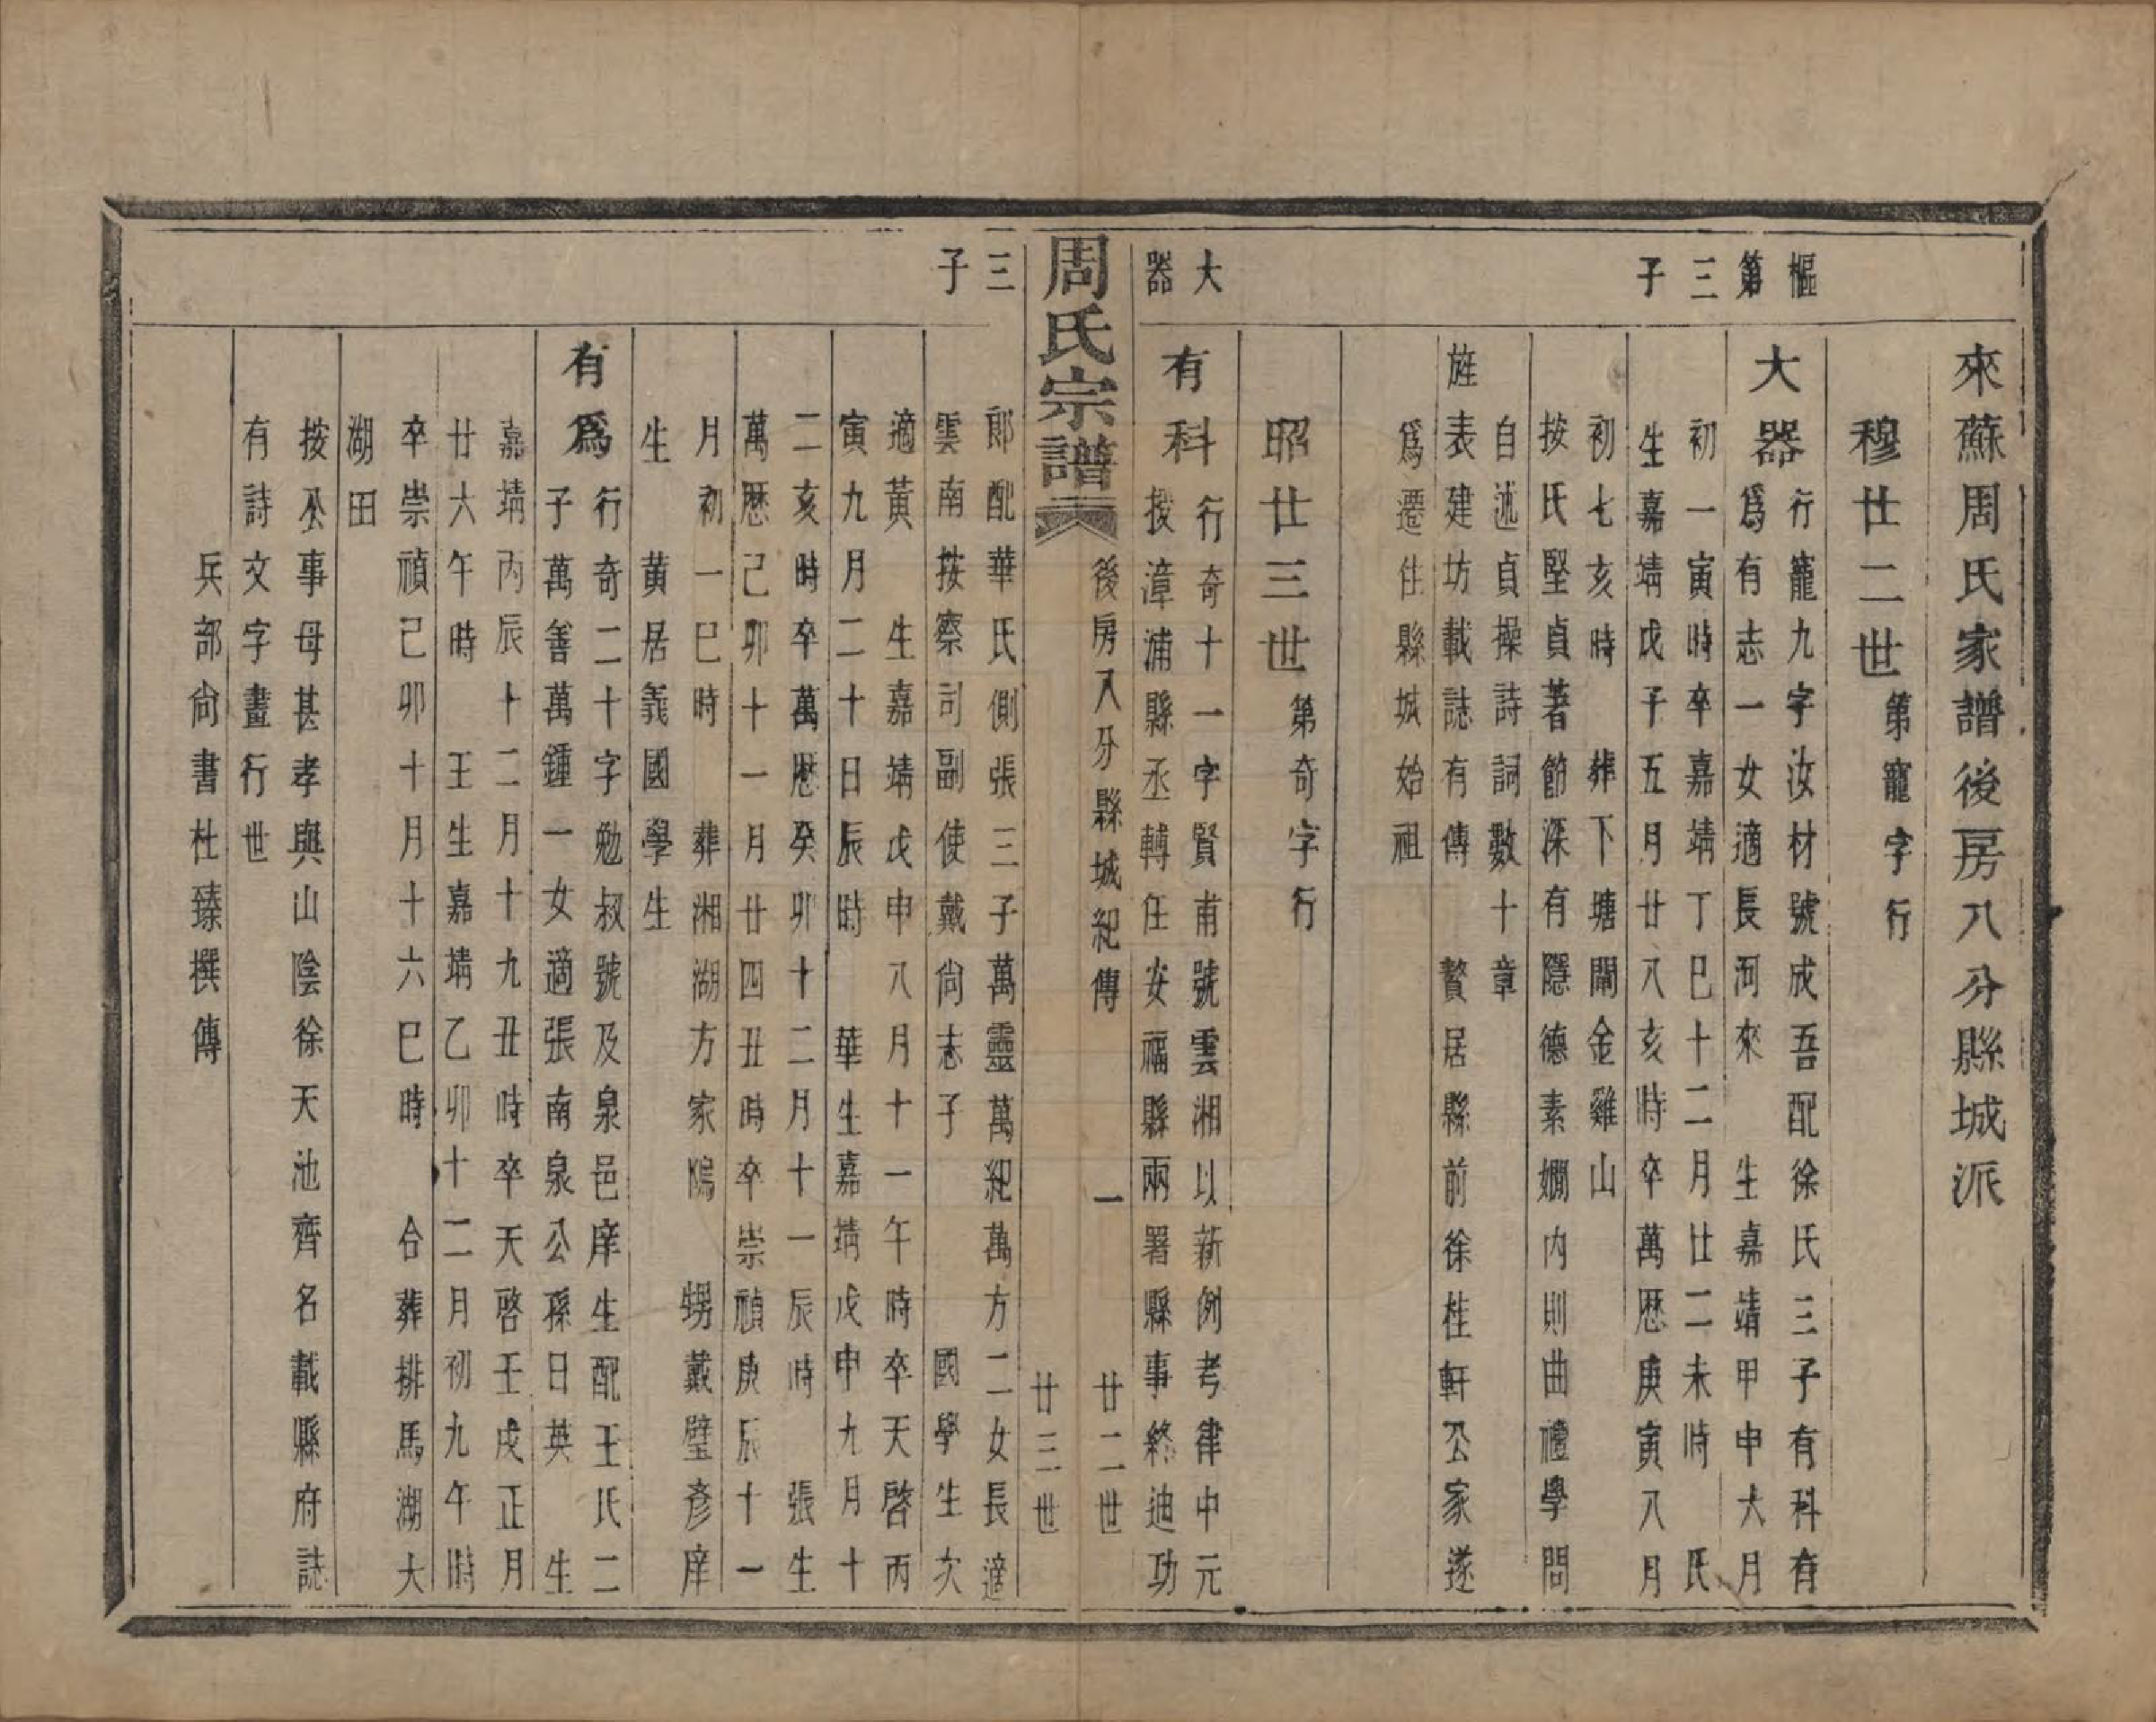 來蘇周氏家譜後房八分縣城派
穆廿二世第寵字行
樞第三子
大器
行寵九字汝材號成吾配徐氏三子有科有
爲有志一女適長河來 生嘉靖甲申大月
初一寅時卒嘉靖丁巳十二月廿二未時 氏
生嘉靖戊子五月廿八亥時卒萬歷庚寅八月
初七亥時 葬下塘閘金雞山
按氏堅貞著節深有隱德素嫻内則曲禮學問
自述貞操詩詞數十章
旌表建坊載誌有傳 贅居縣前徐桂軒公家遂
爲遷住縣城始祖
昭廿三世第奇字行
大器
有科
行奇十一字賢甫號雲湘以新例考律中元
授漳浦縣丞轉任安福縣兩署縣事終迪功
周氏宗譜 後房八分縣城紀傳 一 廿二世
廿三世
三子
郎配華氏側張三子萬靈萬紀萬方二女長適
雲南按察司副使戴尚志子 國學生次
適黃 生嘉靖戊申八月十一午時卒天啓丙
寅九月二十日辰時 華生嘉靖戊申九月十
二亥時卒萬歷癸卯十二月十一辰時 張生
萬歷己卯十一月廿四丑時卒崇禎庚辰十一
月初一巳時 葬湘湖方家隖 甥戴璧彥庠
生 黃居義國學生
有爲
行奇二十字勉叔號及泉邑庠生配王氏二
子萬善萬鍾一女適張南泉公孫日英 生
嘉靖丙辰十二月十九丑時卒天啓壬戌正月
廿六午時 王生嘉靖乙卯十二月初九午時
卒崇禎己卯十月十六巳時 合葬排馬湖大
湖田
按公事母甚孝與山陰徐天池齊名載縣府誌
有詩文字畫行世
兵部尚書杜臻撰傳